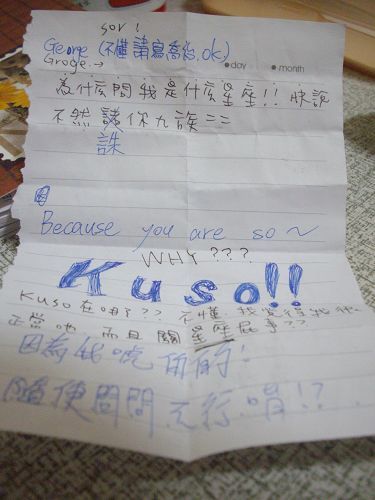 sor!
George (不懂請寫喬治,ok)
Groge.→
day month
為什么問我是什么星座!! 快說
不然誅你九族ニニ
誅
Because you are so~
WHY???
Kuso!!
Kuso在哪?? 不懂.我覺得我很
正常吔.而且關星座屁事??
因為我唬爛的!
隨便問問不行唷!?